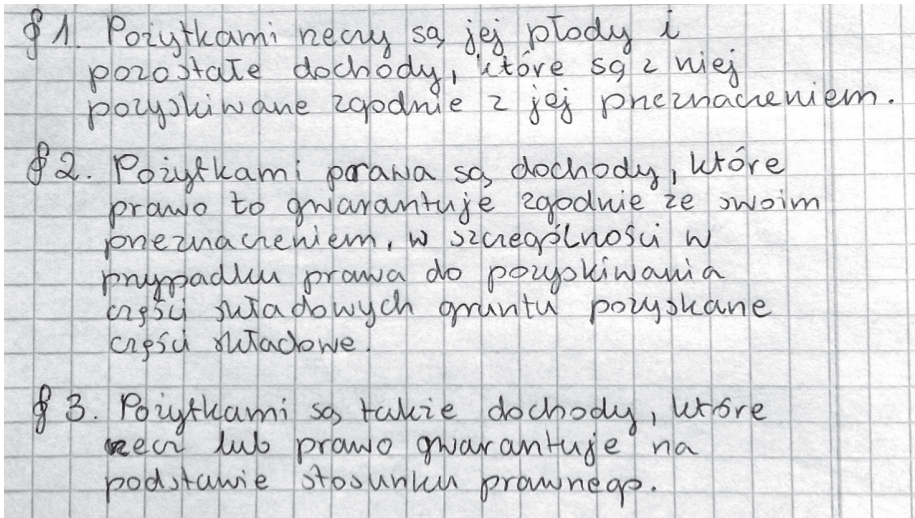 § 1. Pożytkami rzeczy są jej płody i
pozostałe dochody, które są z niej
pozyskiwane zgodnie z jej przeznaczeniem.
§ 2. Pożytkami prawa są dochody, które
prawo to gwarantuje zgodnie ze swoim
przeznaczeniem, w szczególności w
przypadku prawa do pozyskiwania
części składowych gruntu pozyskane
części składowe.
§ 3. Pożytkami są także dochody, które
rzecz lub prawo gwarantuje na
podstawie stosunku prawnego.